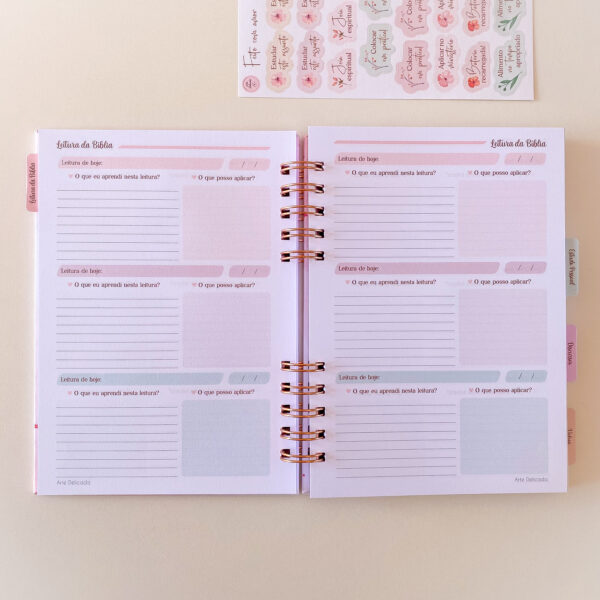 Feito com amor
Estudar
este assunto
Estudar
este assunto
Joia
espiritual
Joia
espiritual
Colocar
em prática
Colocar
em prática
Colocar
em prática
Aplicar no
ministério
Aplicar no
ministério
Bateria
recarregada!
Bateria
recarregada!
Alimento
no tempo
apropriado
Alimento
no tempo
apropriado
Leitura da Bíblia
Leitura da Bíblia
Leitura de hoje:
/ /
O que eu aprendi nesta leitura?
O que posso aplicar?
Leitura de hoje:
/ /
O que eu aprendi nesta leitura?
O que posso aplicar?
Leitura de hoje:
/ /
O que eu aprendi nesta leitura?
O que posso aplicar?
Arte Delicada
Leitura da Bíblia
Leitura de hoje:
/ /
O que eu aprendi nesta leitura?
O que posso aplicar?
Leitura de hoje:
/ /
O que eu aprendi nesta leitura?
O que posso aplicar?
Leitura de hoje:
/ /
O que eu aprendi nesta leitura?
O que posso aplicar?
Arte Delicada
Estudo Pessoal
Discursos
Notas